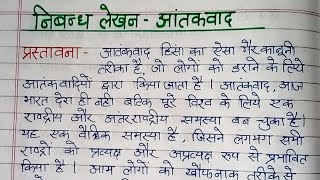 निबन्ध लेखन - आंतकवाद
प्रस्तावना - आतंकवाद हिंसा का ऐसा गैर कानूनी
तरीका है, जो लोगों को डराने के लिए
आतंकवादियों द्वारा किया जाता है। आतंकवाद, आज
भारत देश ही नही बल्कि पूरे विश्व के लिये एक
राष्ट्रीय और अंतरराष्ट्रीय समस्या बन चुका है।
यह एक वैश्विक समस्या है, जिसने लगभग सभी
राष्ट्रों को प्रत्यक्ष और अप्रत्यक्ष रूप से प्रभावित
किया है। आम लोगों को खौफनाक तरीके से